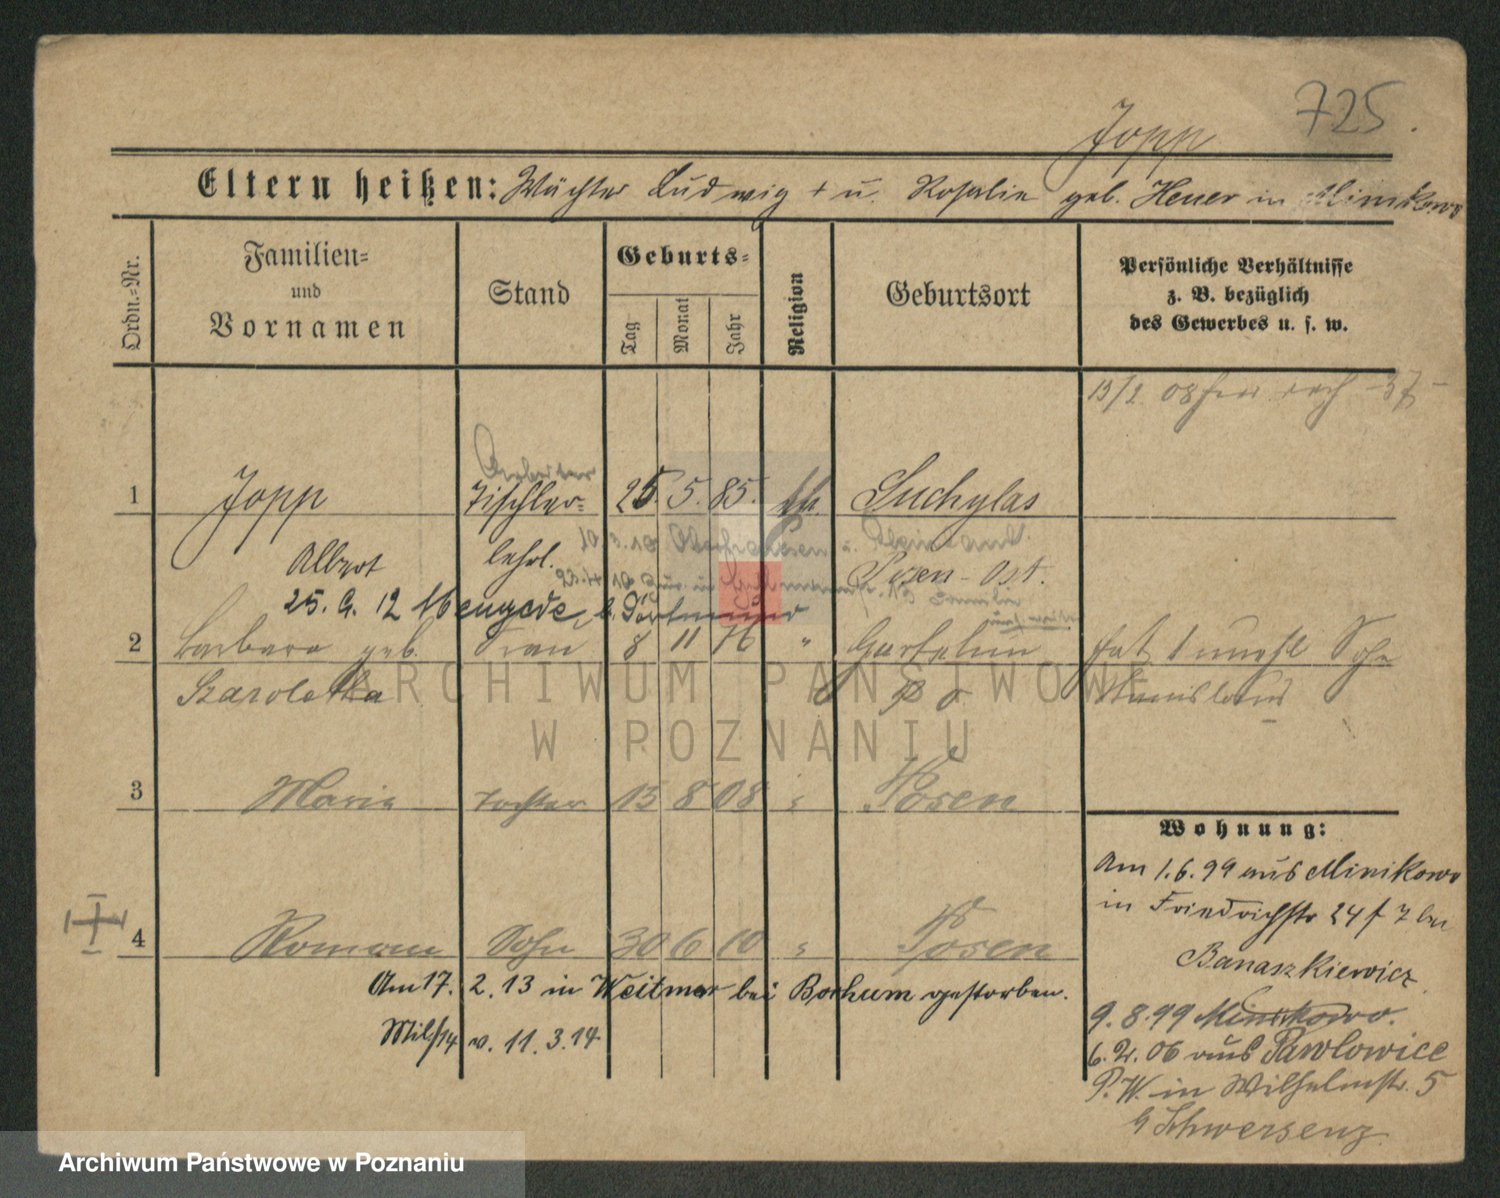 725.
Jopp
Eltern heißen: Wächter Ludwig + u. Rosalie geb. Heuer in Minikowo
Ordn.-Nr.
Familien-
und
Vornamen
Stand
Geburts-
Tag
Monat
Jahr
Religion
Geburtsort
Persönliche Verhältnisse
z. B. bezüglich
des Gewerbes u. s. w.
13/2 08
Arbeiter
1 Jopp Tischler- 25. 5. 85. Suchylas
Albert lehrl. Posen-Ost.
25. 9. 12 Mengede, b. Dortmund
2 Barbara geb. Frau 8 11 76 " hat 1 unehl Sohn
Szaroletka Stanislaus
3 Maria Tochter 15 8 08 " Posen
4 Roman Sohn 30 6 10 " Posen
Am 17. 2. 13 in Weitmar bei Bochum gestorben.
v. 11. 3. 14
Wohnung:
Am 1.6.99 aus Minikowo
in Friedrichstr 24 f 7 bei
Banaszkiewicz
9. 8. 99 Minikowo.
6. 2. 06 aus Pawlowice
P.W. in Wilhelmstr. 5
Schwersenz
ARCHIWUM PAŃSTWOWE
W POZNANIU
Archiwum Państwowe w Poznaniu